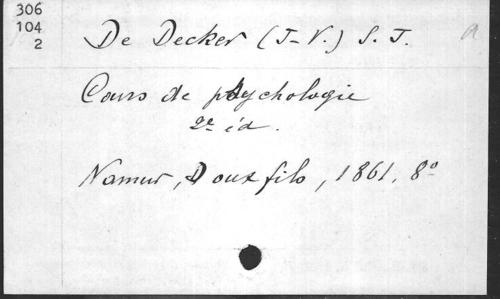 306
104
2
De Decker (J-V.) S. J.
a
Cours de psychologie
2e éd.
Namur, Doux fils, 1861, 8°